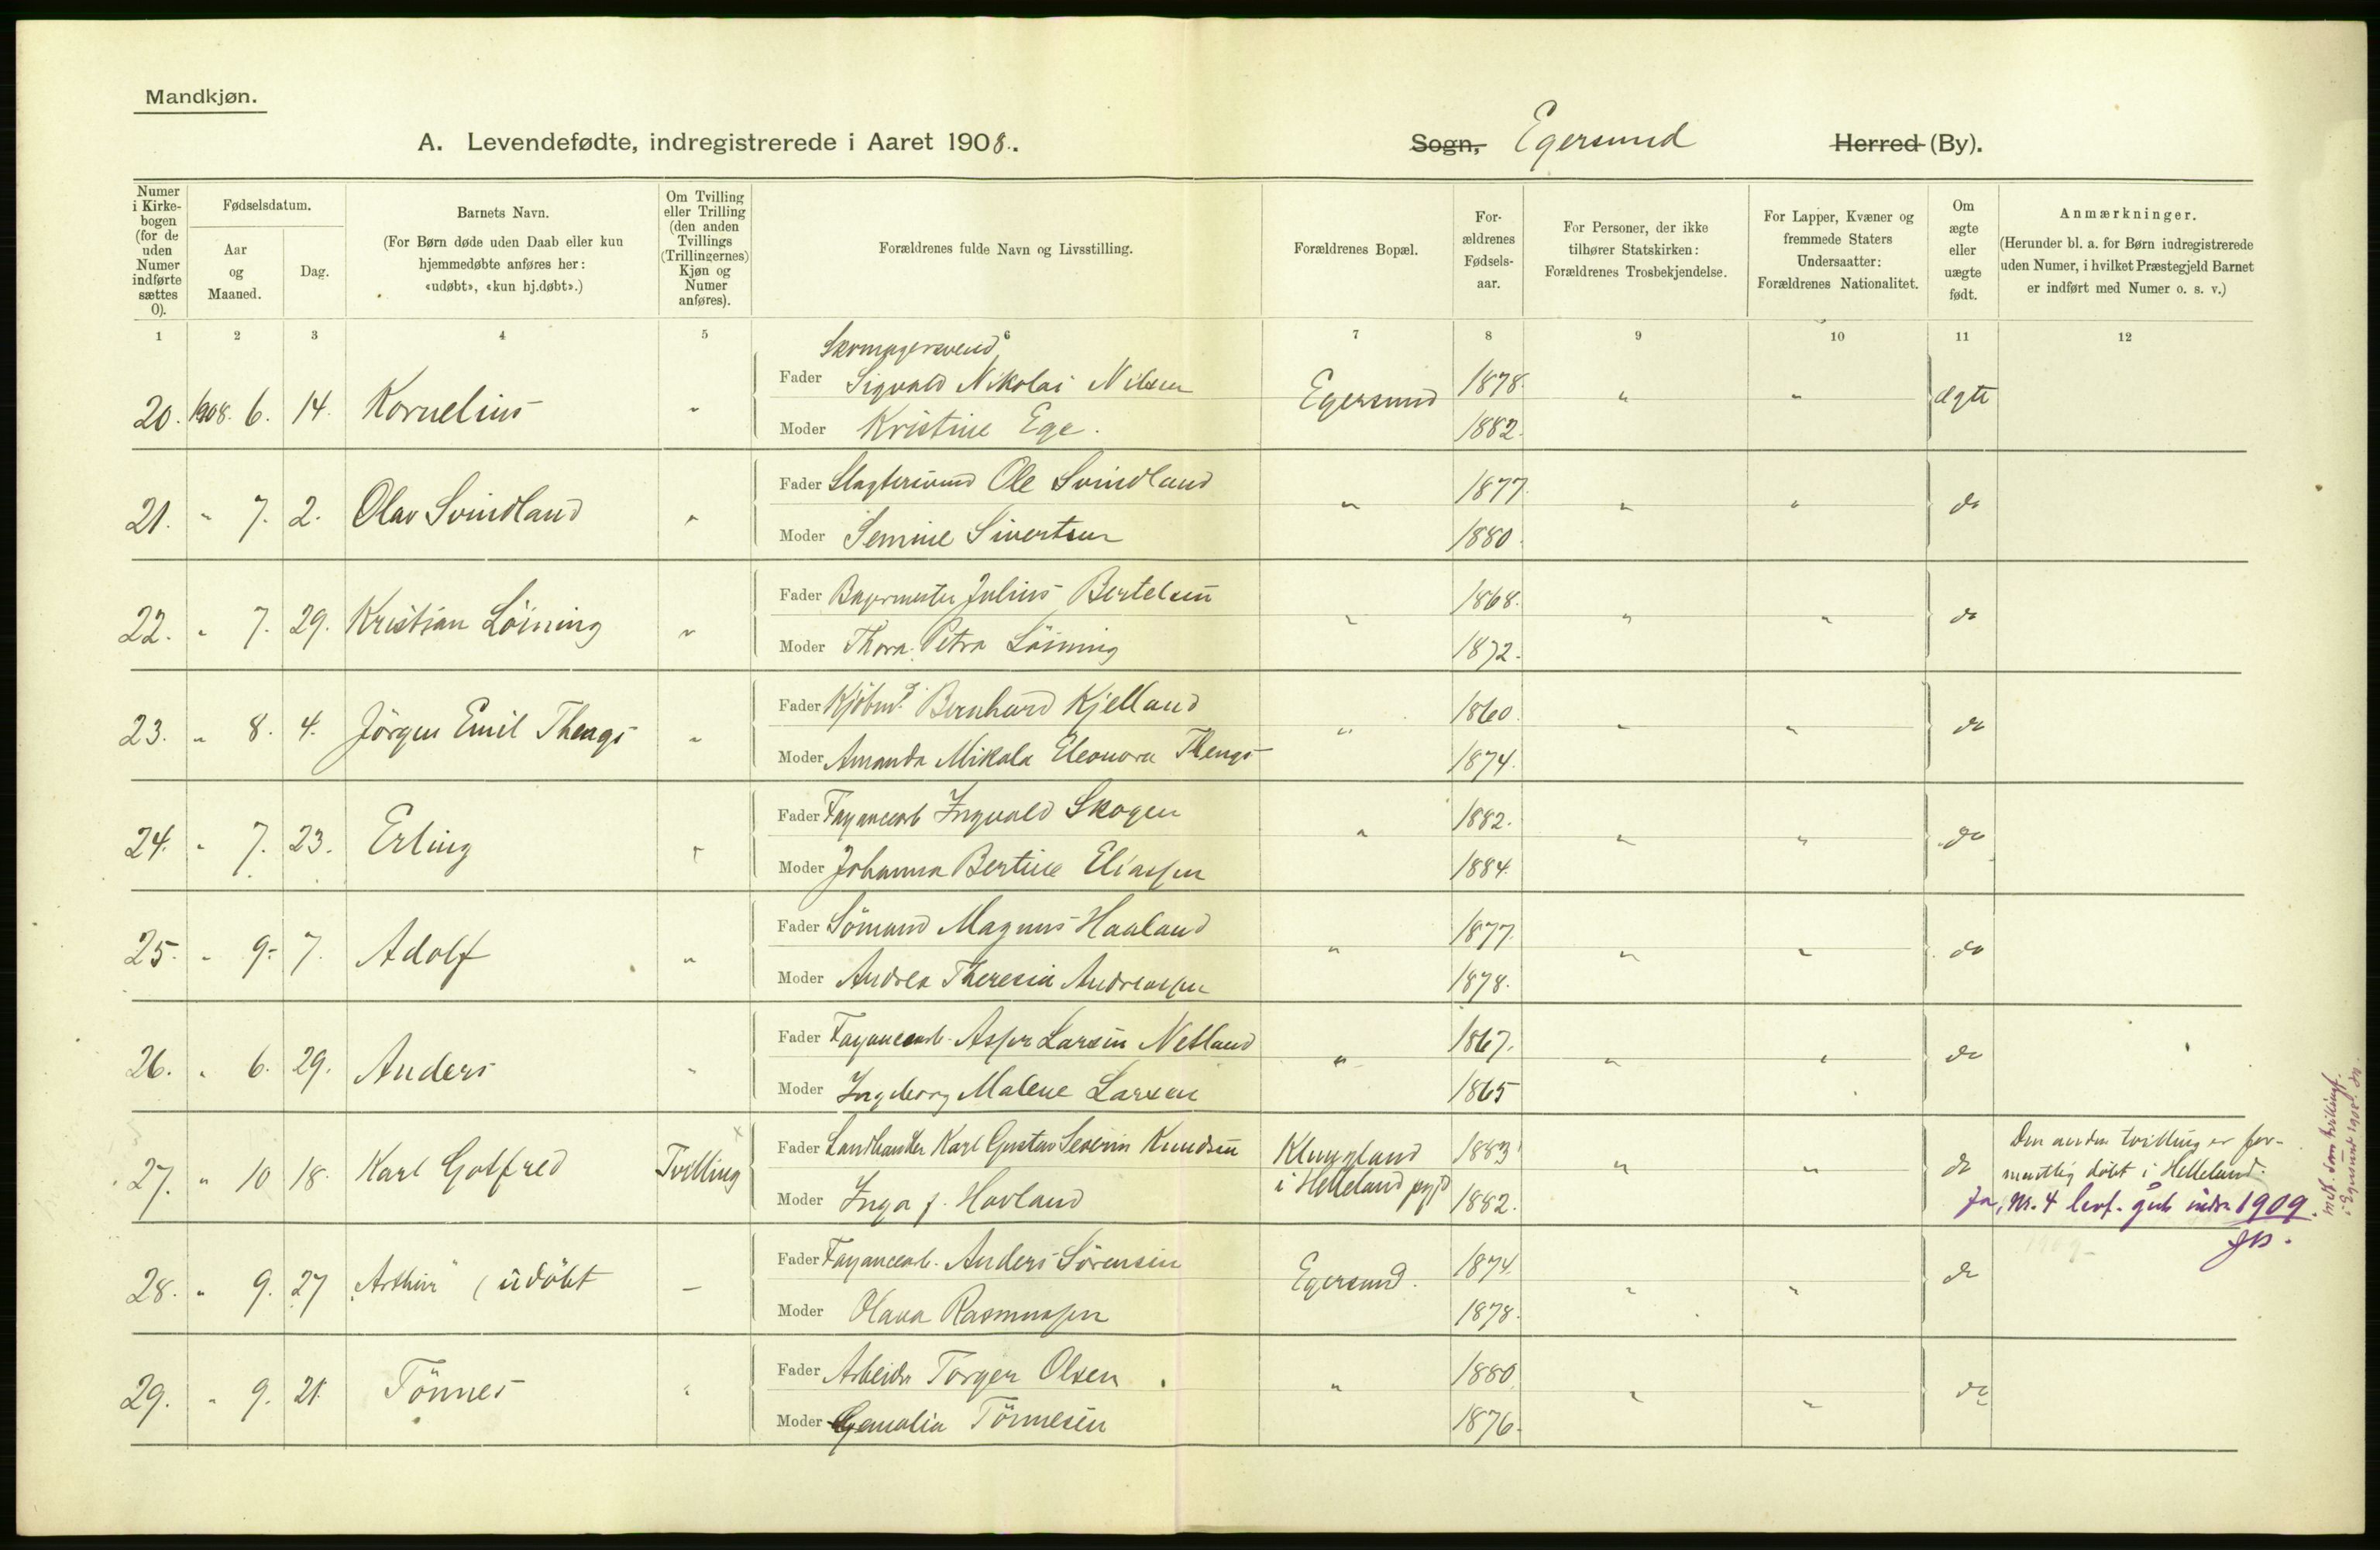 Mandkjøn.
A. Levendefødte, indregistrerede i Aaret 1908.
Sogn, Egersund Herred (By).
Numer i Kirkebogen (for de uden Numer indførte sættes 0).
Fødselsdatum.
Aar og Maaned.
Dag.
Barnets Navn.
(For Børn døde uden Daab eller kun hjemmedøbte anføres her: «udøbt», «kun hj.døbt».)
Om Tvilling eller Trilling (den anden Tvillings (Trillingernes) Kjøn og Numer anføres).
Forældrenes fulde Navn og Livsstilling.
Forældrenes Bopæl.
Forældrenes Fødselsaar.
For Personer, der ikke tilhører Statskirken: Forældrenes Trosbekjendelse.
For Lapper, Kvæner og fremmede Staters Undersaatter: Forældrenes Nationalitet.
Om ægte eller uægte født.
Anmærkninger.
(Herunder bl. a. for Børn indregistrerede uden Numer, i hvilket Præstegjeld Barnet er indført med Numer o. s. v.)
1 2 3 4 5 6 7 8 9 10 11 12
Skomagersvend
Fader Sigvald Nikolai Nilsen 1878.
20. 1908. 6. 14. Kornelius " Egersund " " ægte
Moder Kristine Ege. 1882.
Fader Slagtersvend Ole Svindland 1877.
21. " 7. 2. Olav Svindland " " " " do
Moder Semine Sivertsen 1880.
Fader Bagermester Julius Bertelsen 1868.
22. " 7. 29. Kristian Löining " " " " do
Moder Thora Petra Löining 1872.
Fader Kjöbmd. Bernhard Kjelland 1860.
23. " 8. 4. Jörgen Emil Thengs " " " " do
Moder Amanda Mikala Eleonora Thengs 1874.
Fader Fayancearb Ingvald Skogen 1882.
24. " 7. 23. Erling " " " " do
Moder Johanna Bertine Eliassen 1884.
Fader Sömand Magnus Haaland 1877.
25. " 9. 7. Adolf " " " " do
Moder Andrea Theresia Andreassen 1878.
Fader Fayancearb. Asser Larsen Netland 1867.
26. " 6. 29. Anders " " " " do
Moder Ingeborg Malene Larsen 1865
Fader Landhandler Karl Gustav Severin Knudsen Klungland 1883
27. " 10 18. Karl Gotfred Tvilling i Helleland pgjd " " do
Moder Inga f. Hovland 1882.
Den anden tvilling er formentlig döbt i Helleland.
Ja, Nr. 4 levf. gut indr. 1909.
Fader Fayancearb. Anders Sörensen 1874.
28. " 9. 27 "Arthur" (udöbt — Egersund. " " do
Moder Olava Rasmussen 1878.
Fader Arbeider Torger Olsen 1880.
29. " 9. 21. Tönnes " " " " do
Moder Gemalia Tönnesen 1876.